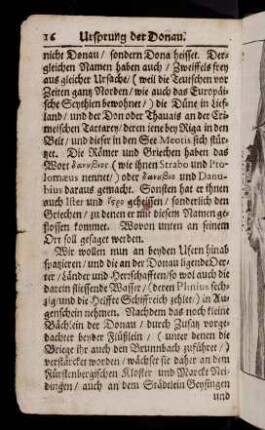 16 Ursprung der Donau.
nicht Donau / sondern Dona heisset. Der-
gleichen Namen haben auch / Zweiffels frey
aus gleicher Ursache / ( weil die Teutschen vor
Zeiten gantz Norden / wie auch das Europäi-
sche Scythien bewohnet / ) die Düne in Lief-
land / und der Don oder Thanais an der Cri-
meischen Tartarey / deren jene bey Riga in den
Belt / und dieser in den See Meotis sich stür-
tzet. Die Römer und Griechen haben das
Wort ( wie ihnen Strabo und Pto-
lomæus nennet / ) oder und Danu-
bius daraus gemacht. Sonsten hat er ihnen
auch Ister und geheissen / sonderlich den
Griechen / zu denen er mit diesem Namen ge-
flossen kommet. Wovon unten an seinem
Ort soll gesaget werden.
Wir wollen nun an beyden Ufern hinab
spatzieren / und die an der Donau ligende Oer-
ter / Länder und Herrschafften / so wol auch die
darein fliessende Wasser / ( deren Plinius sech-
zig / und die Helffte Schiffreich zehlet / ) in Au-
genschein nehmen. Nachdem das noch kleine
Bächlein der Donau / durch Zusatz vorge-
dachter beyder Flüßlein / ( unter denen die
Briege ihr auch den Brunnbach zuführet / )
verstärcket worden / wächset sie daher an dem
Fürstenbergischen Kloster und Marckt Nei-
dingen / auch an dem Städtlein Geysingen
und